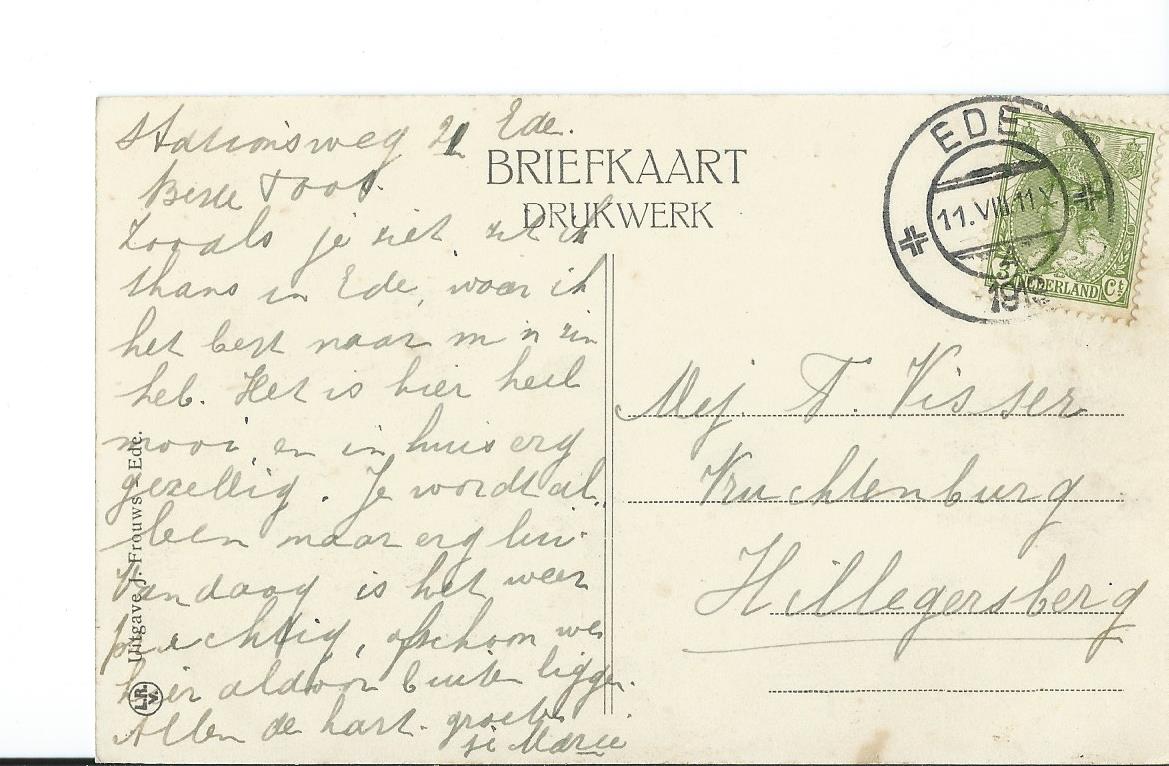 Stationsweg 21 Ede.
Beste Toos.
Zooals je ziet zit ik
thans in Ede, waar ik
het best naar m'n zin
heb. Het is hier heel
mooi en in huis erg
gezellig. Je wordt al.
leen maar erg lui.
Vandaag is het weer
prachtig, ofschoon we
hier aldoor buiten liggen.
Allen de hart. groeten
je Marie
BRIEFKAART
DRUKWERK
EDE
11.VIII.11
191
NEDERLAND Ct
Mej. T. Visser
Vruchtenburg
Hillegersberg
Uitgave J. Frouws - Ede.
L.R.
V.